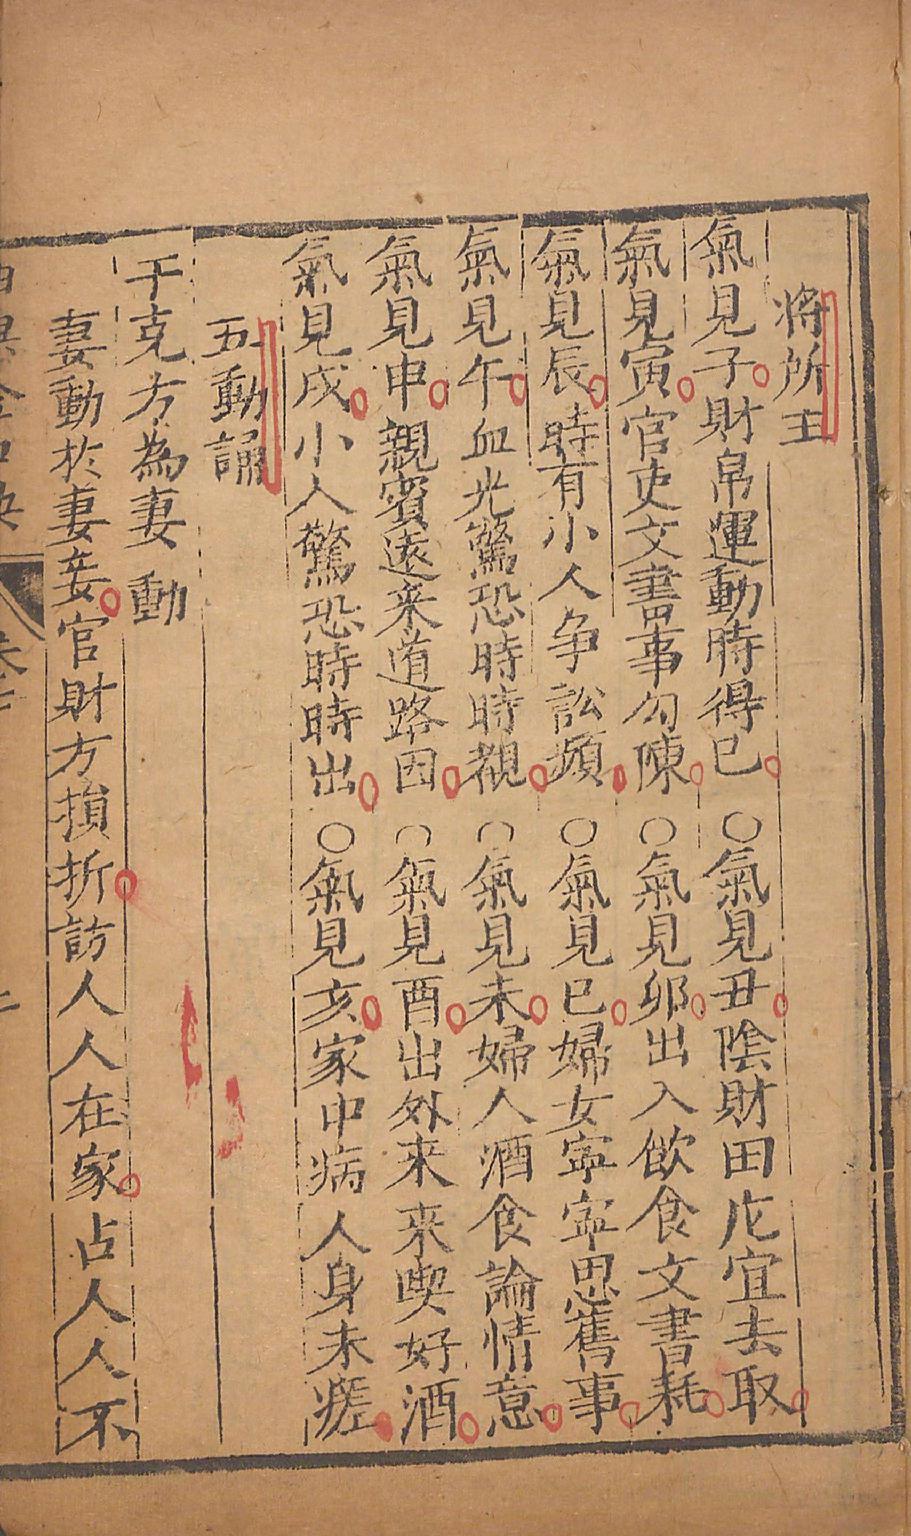 将所主
氣見子財帛運動時得已○氣見丑陰財田庀宜去取
氣見寅官吏文書事勾陳○氣見卯出入飲食文書耗
氣見辰時有小人争訟頻○氣見巳婦女寧寧思舊事
氣見午血光驚恐時時覩○氣見未婦人酒食論情意
氣見申親賓遠来道路因○氣見酉出外来来喫好酒
氣見戌小人驚恐時時出○氣見亥家中病人身未瘥
五動誦
干克方為妻動
妻動於妻妾官財方損折訪人人在家占人人不